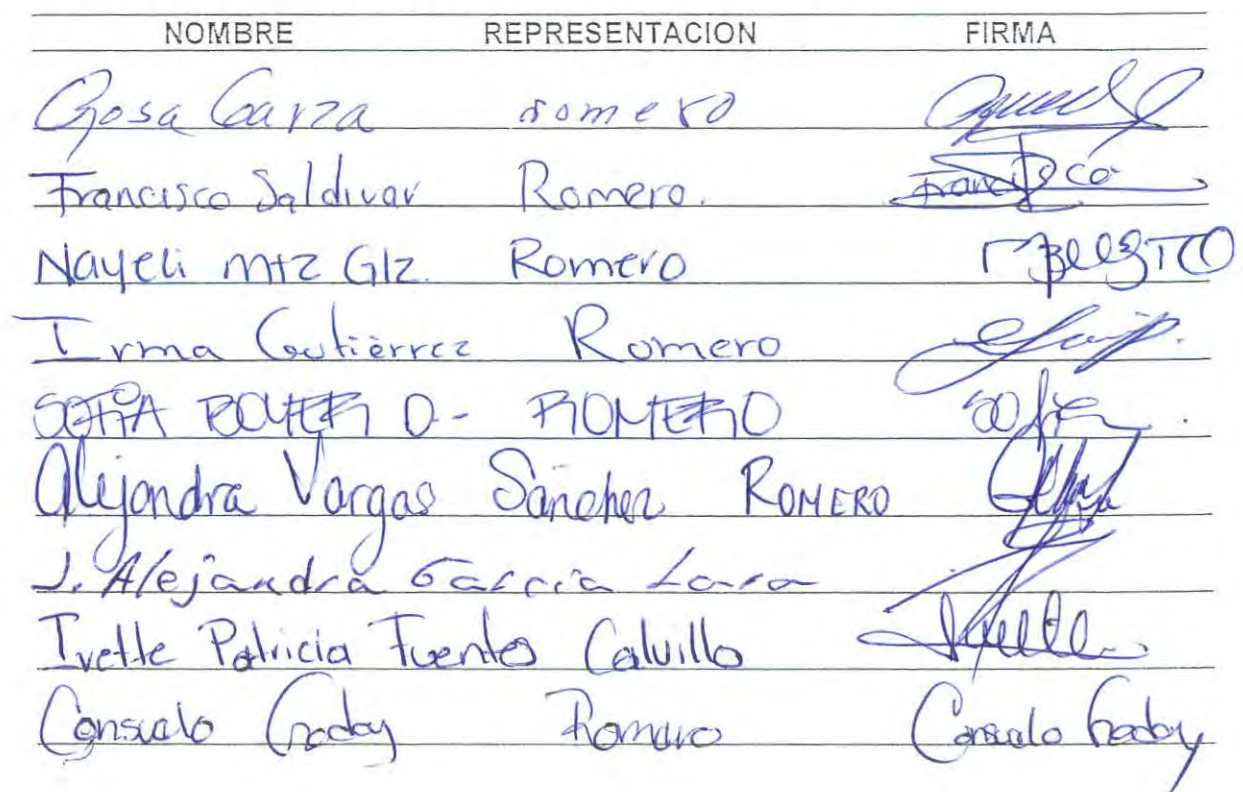 NOMBRE REPRESENTACION FIRMA
Rosa Garza romero
Francisco Saldivar Romero. Francisco
Nayeli mtz Glz. Romero
Irma Gutiérrez Romero
SOFIA D- ROMERO Sofia
Alejandra Vargas Sánchez ROMERO
J. Alejandra García Lara
Ivette Patricia Fuentes Calvillo Ivette
Consuelo Godoy Romero Consuelo Godoy